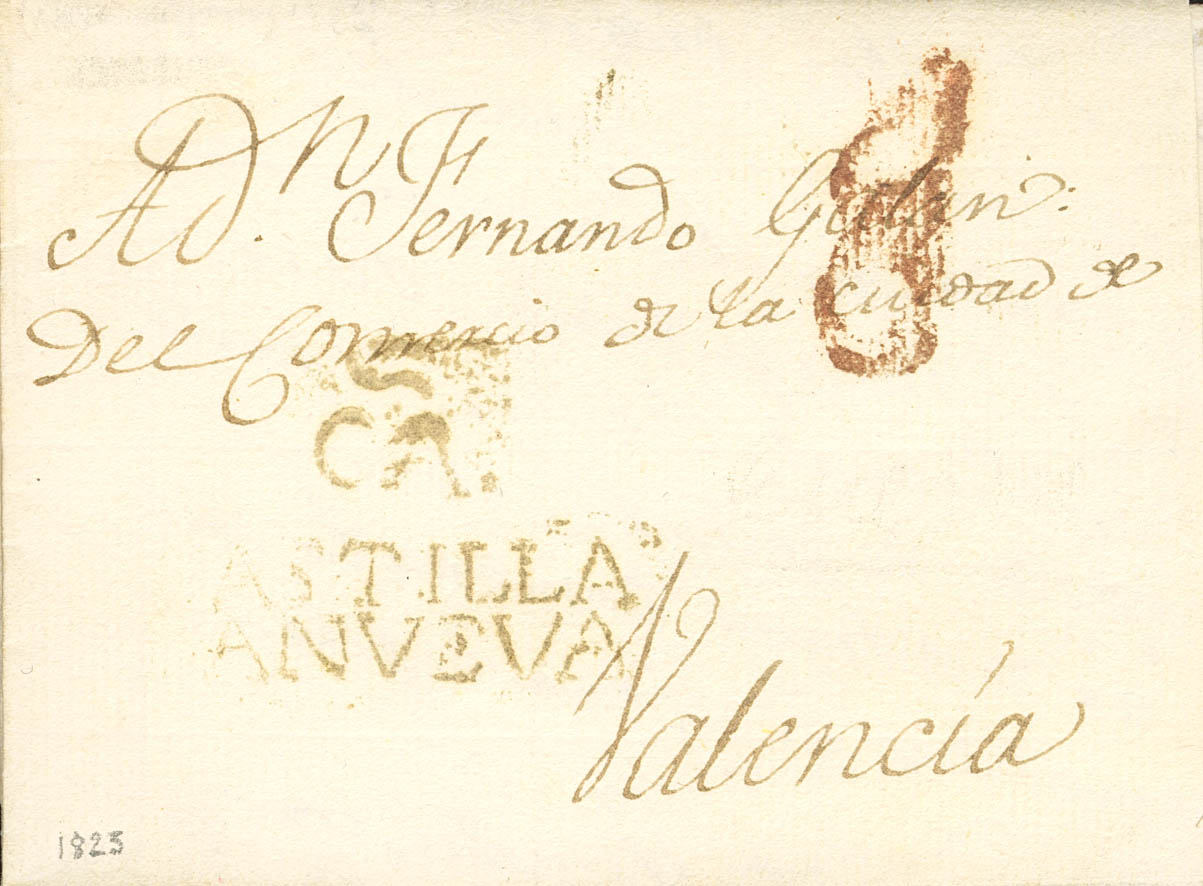 A Dn. Fernando
Del Comercio de la cuidad de
CA.
ASTILLA
ANUEVA
Valencía
1823